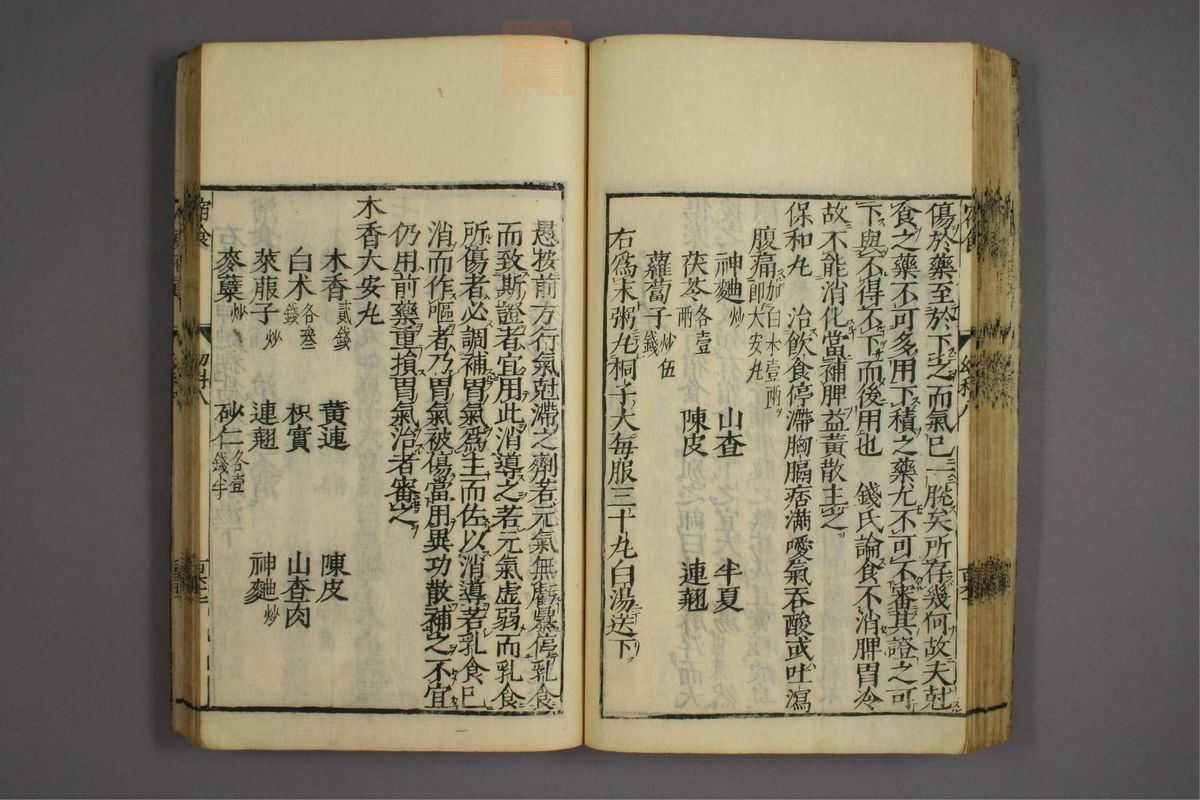 傷於藥至於下之而氣已一脫矣所存幾何故夫尅
食之藥不可多用下積之藥尤不可不審其證之可
下與不得不下而後用也 錢氏論食不消脾胃冷
故不能消化當補脾益黃散主之
保和丸 治飲食停滯胸膈痞滿噯氣吞酸或吐瀉
腹痛加白朮壹兩即大安丸
神麯炒 山查 半夏
茯苓各壹兩 陳皮 連翹
蘿蔔子炒伍錢
右爲末粥丸桐子大每服三十丸白湯送下
愚按前方行氣尅滯之劑若元氣無虧暴停乳食
而致斯證者宜用此消導之若元氣虛弱而乳食
所傷者必調補胃氣爲主而佐以消導若乳食已
消而作嘔者乃胃氣被傷當用異功散補之不宜
仍用前藥重損胃氣治者審之
木香大安丸
木香貳錢 黃連 陳皮
白朮各叁錢 枳實 山查肉
萊菔子炒 連翹 神麯炒
麥蘗炒 砂仁各壹錢半
宿食